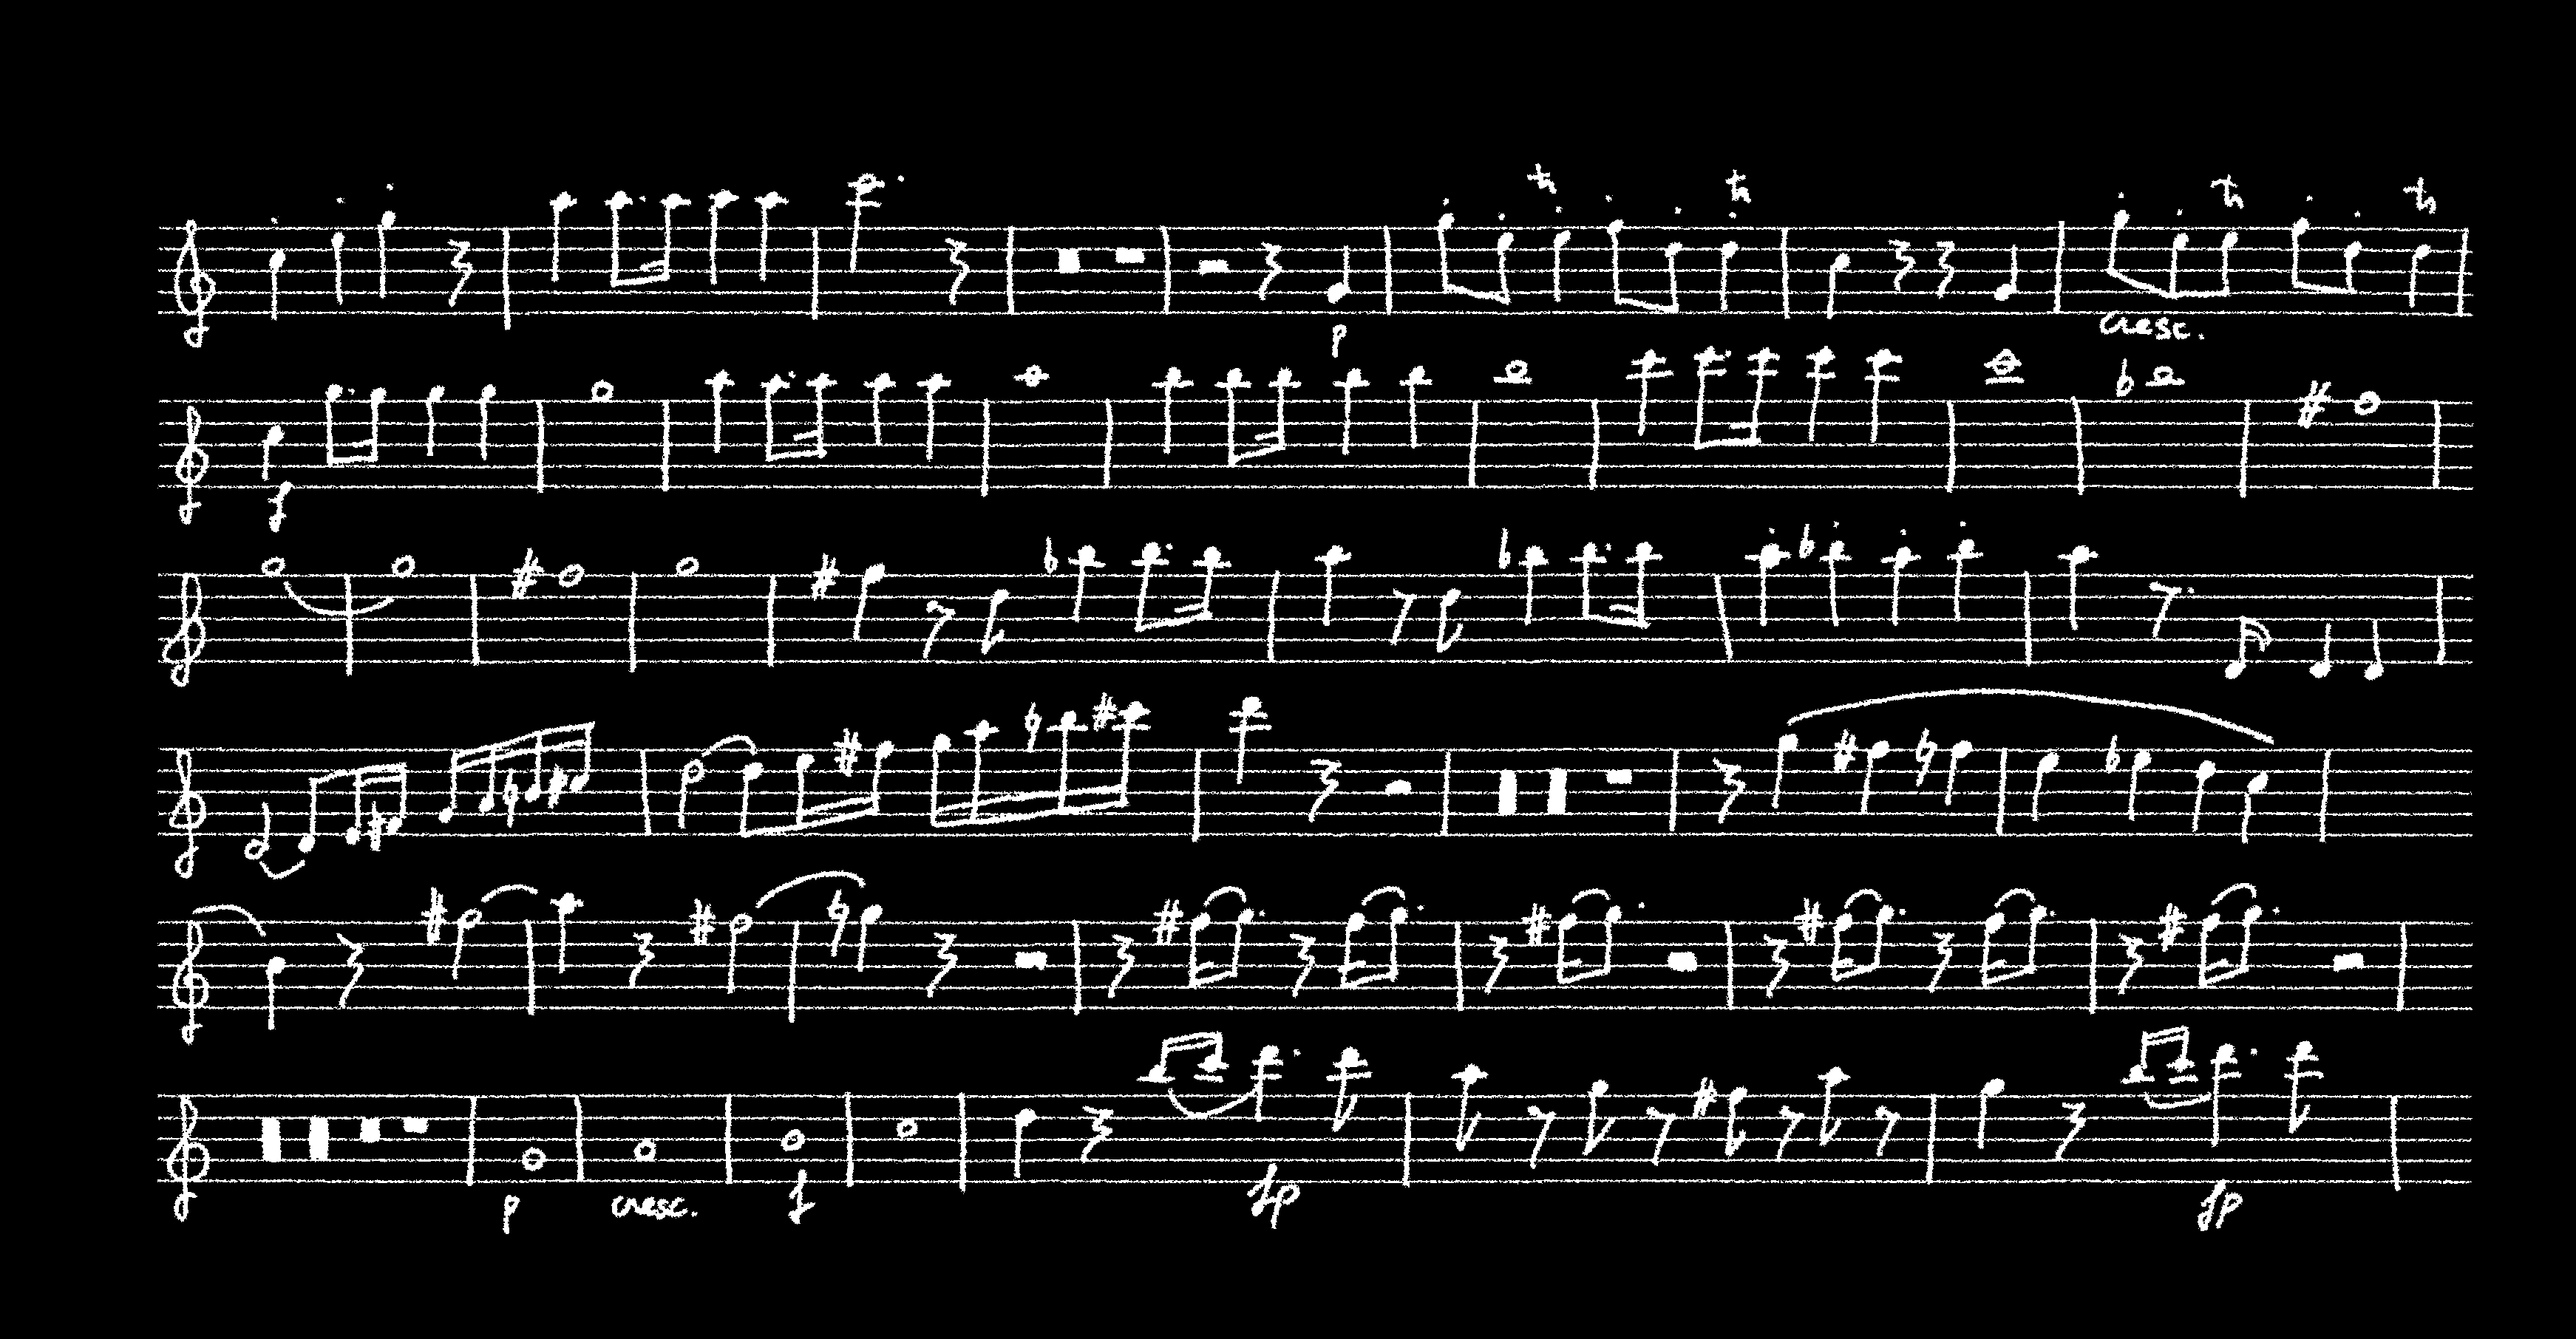 tr tr tr tr
p cresc.
f
p cresc. f fp fp